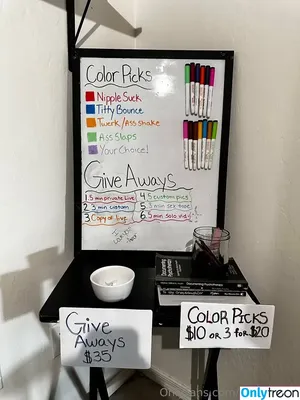 Color Picks
Nipple Suck
Titty Bounce
Twerk/Ass shake
Ass Slaps
Your Choice!
Give Aways
1. 5 min private Live
4. 5 custom pics
2. 3 min custom
5. 3 min sex tape
3. Copy of live
6. 5 min solo vid
Give
Aways
$35
Color Picks
$10 or 3 for $20
Onlytreon